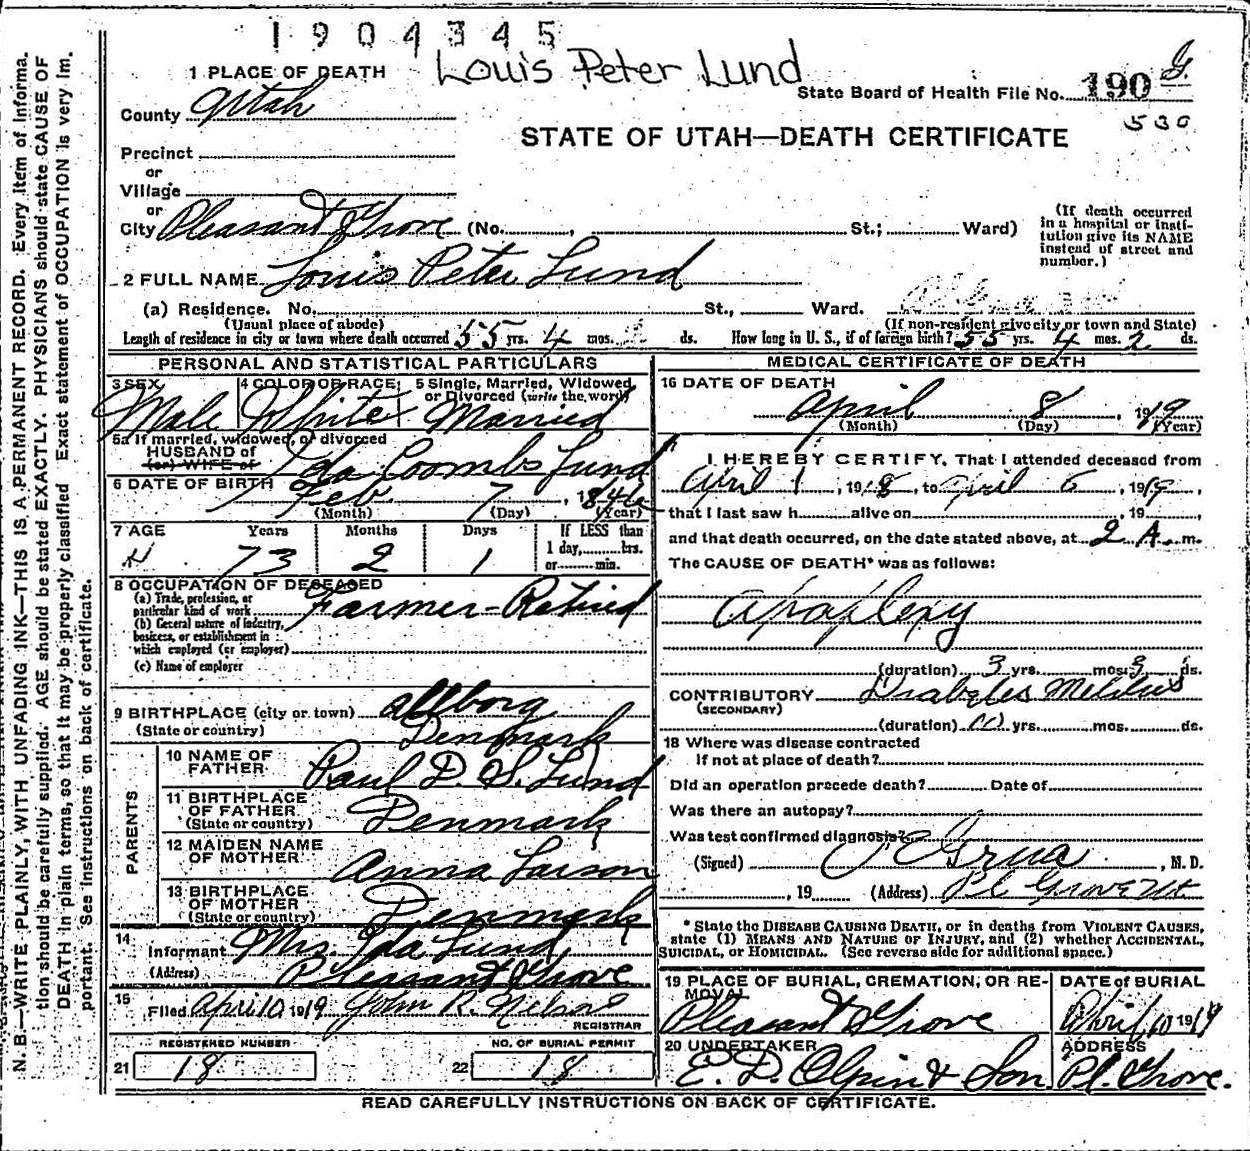 1904345
Louis Peter Lund
1 PLACE OF DEATH
State Board of Health File No. 190 G.
530
County Utah
STATE OF UTAH—DEATH CERTIFICATE
Precinct
or
Village
or
City Pleasant Grove (No. , St.; Ward)
(If death occurred
in a hospital or insti-
tution give its NAME
instead of street and
number.)
2 FULL NAME Louis Peter Lund
(a) Residence. No. St., Ward.
(Usual place of abode) (If non-resident give city or town and State)
Length of residence in city or town where death occurred 55 yrs. 4 mos. ds. How long in U. S., if of foreign birth? 55 yrs. 4 mos. 2 ds.
PERSONAL AND STATISTICAL PARTICULARS
3 SEX
Male
4 COLOR OR RACE
White
5 Single, Married, Widowed
or Divorced (write the word)
Married
5a If married, widowed, or divorced
HUSBAND of
(or) WIFE of
Ida Coombs Lund
6 DATE OF BIRTH
Feb. 7, 1846
(Month) (Day) (Year)
7 AGE Years Months Days If LESS than
73 2 1 1 day, hrs.
or min.
8 OCCUPATION OF DESEASED
(a) Trade, profession, or
particular kind of work Farmer - Retired
(b) General nature of industry,
business, or establishment in
which employed (or employer)
(c) Name of employer
9 BIRTHPLACE (city or town) allborg
(State or country) Denmark
PARENTS
10 NAME OF
FATHER Paul D. S. Lund
11 BIRTHPLACE
OF FATHER
(State or country) Denmark
12 MAIDEN NAME
OF MOTHER Anna Larson
13 BIRTHPLACE
OF MOTHER
(State or country) Denmark
14
Informant Mrs. Ida Lund
(Address) Pleasant Grove
15
Filed April 10 1919 John R. Nelson
REGISTRAR
REGISTERED NUMBER NO. OF BURIAL PERMIT
21 18 22 18
MEDICAL CERTIFICATE OF DEATH
16 DATE OF DEATH
April 8, 1919
(Month) (Day) (Year)
I HEREBY CERTIFY, That I attended deceased from
April 1, 1918, to April 6, 1919,
that I last saw h alive on , 19 ,
and that death occurred, on the date stated above, at 2 A. m.
The CAUSE OF DEATH* was as follows:
Apoplexy
(duration) 3 yrs. mos. 3 ds.
CONTRIBUTORY Diabetes Melitus
(SECONDARY)
(duration) yrs. mos. ds.
18 Where was disease contracted
If not at place of death?
Did an operation precede death? Date of
Was there an autopay?
Was test confirmed diagnosis?
(Signed) Grua, M. D.
, 19 (Address) Pl. Grove Ut
* State the DISEASE CAUSING DEATH, or in deaths from VIOLENT CAUSES,
state (1) MEANS AND NATURE OF INJURY, and (2) whether ACCIDENTAL,
SUICIDAL, or HOMICIDAL. (See reverse side for additional space.)
19 PLACE OF BURIAL, CREMATION, OR RE-
MOVAL
Pleasant Grove
DATE of BURIAL
April 10 1919
20 UNDERTAKER
E. D. Olpin & Son.
ADDRESS
Pl. Grove.
READ CAREFULLY INSTRUCTIONS ON BACK OF CERTIFICATE.
N. B.—WRITE PLAINLY, WITH UNFADING INK—THIS IS A PERMANENT RECORD. Every item of informa-
tion should be carefully supplied. AGE should be stated EXACTLY. PHYSICIANS should state CAUSE OF
DEATH in plain terms, so that it may be properly classified. Exact statement of OCCUPATION is very im-
portant. See instructions on back of certificate.